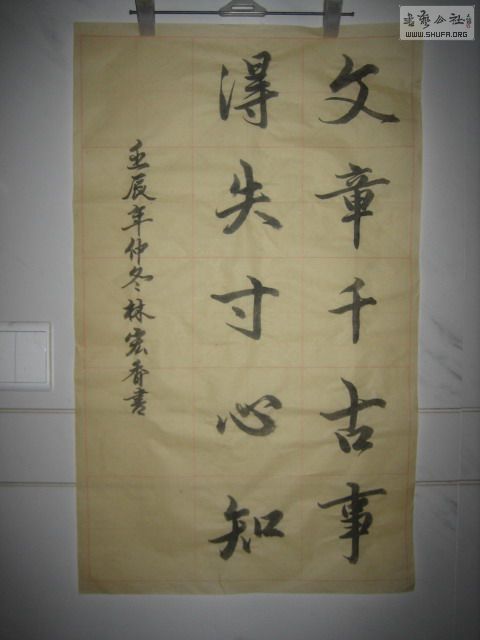 文章千古事
得失寸心知
壬辰年仲冬林宏香書
書藝公社
WWW.SHUFA.ORG